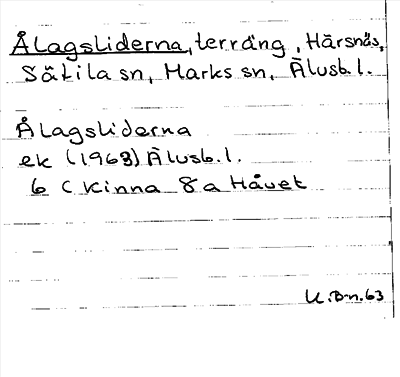 Ålagsliderna, terräng, Härsnäs,
Sätila sn, Marks sn, Älvsb. l.
Ålagsliderna
ek (1963) Älvsb. l.
6 C Kinna 8 a Håvet
U.Bn.63